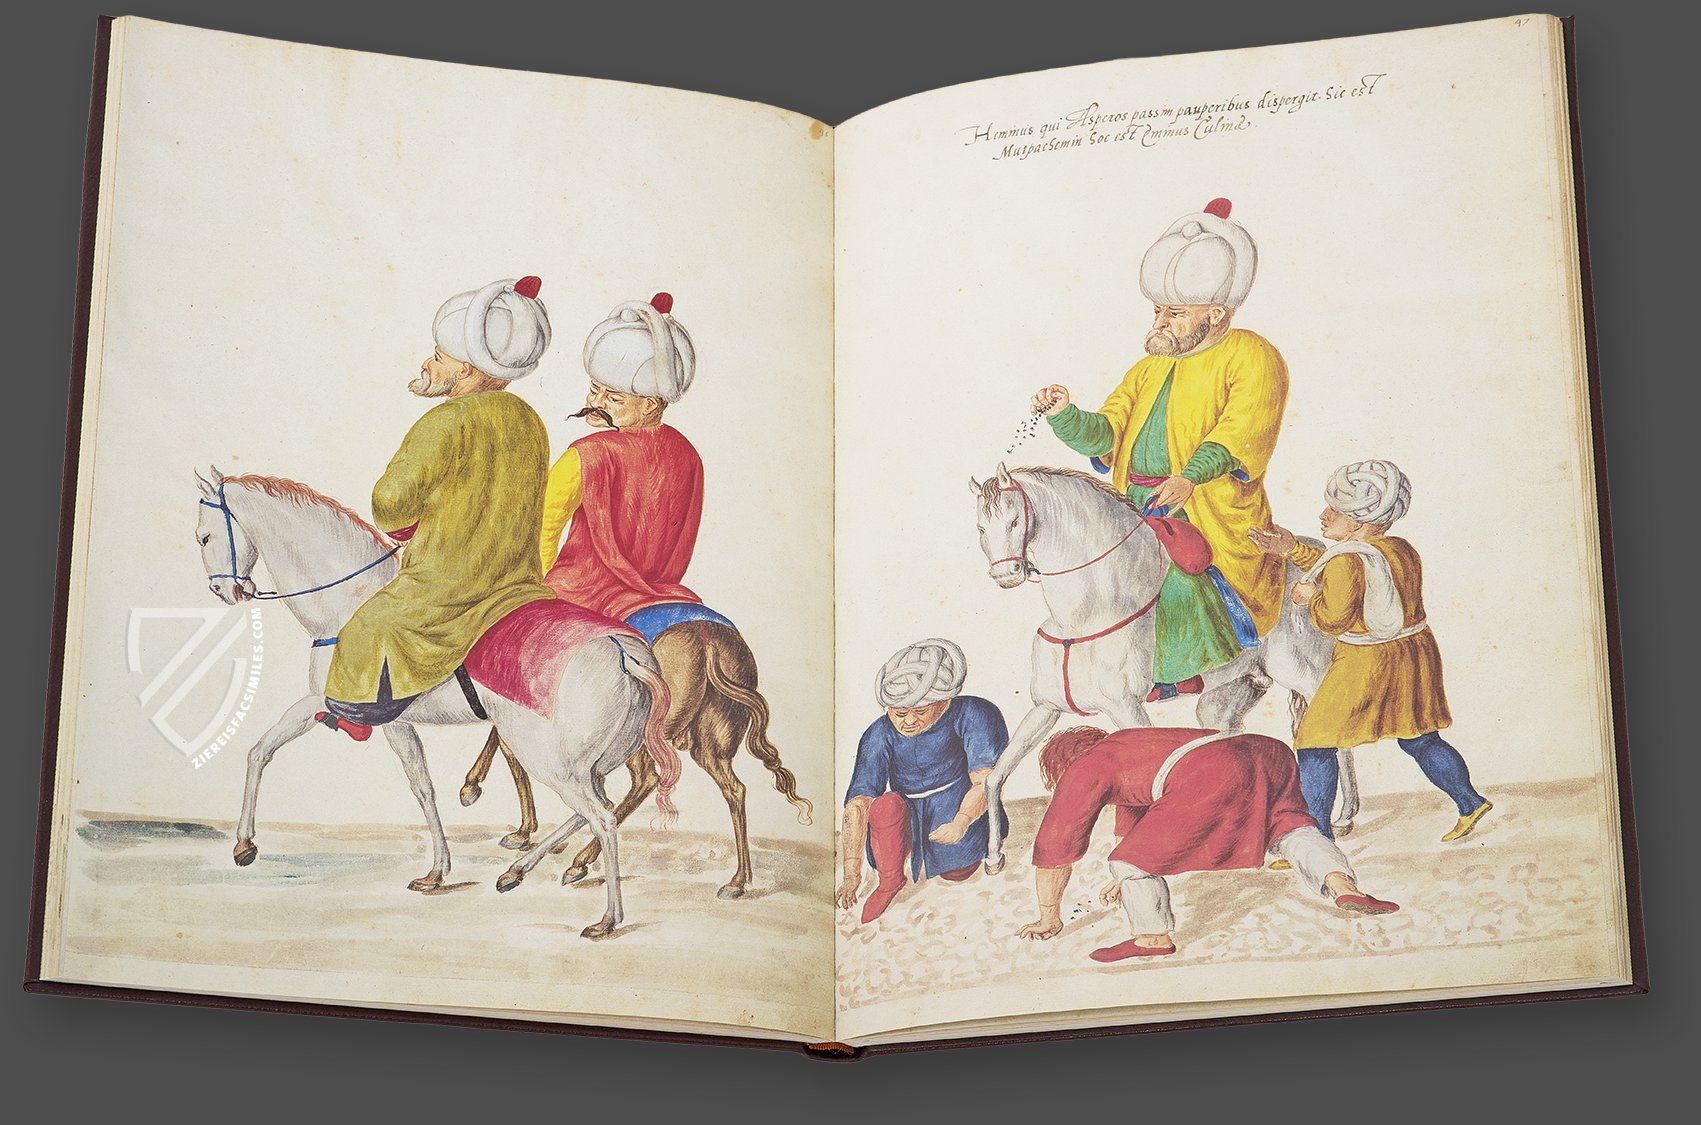 ZIEREISFACSIMILES.COM
47
Hemmus qui Asperos passim pauperibus dispergit. Sic est
Mutpachemin hoc est Emmus Culinæ